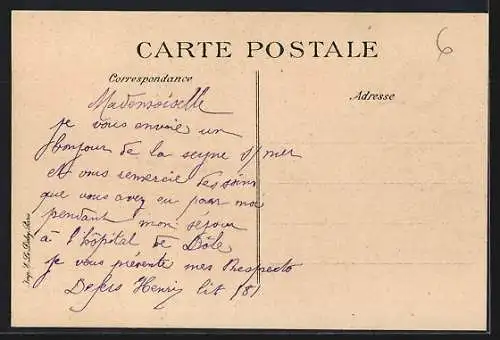 6
CARTE POSTALE
Correspondance
Adresse
Mademoiselle
je vous envoie un
bonjour de la seyne s/mer
et vous remercie des soins
que vous avez eu pour moi
pendant mon séjour
à l'hôpital de Dôle
je vous présente mes Respects
Henry lit 181